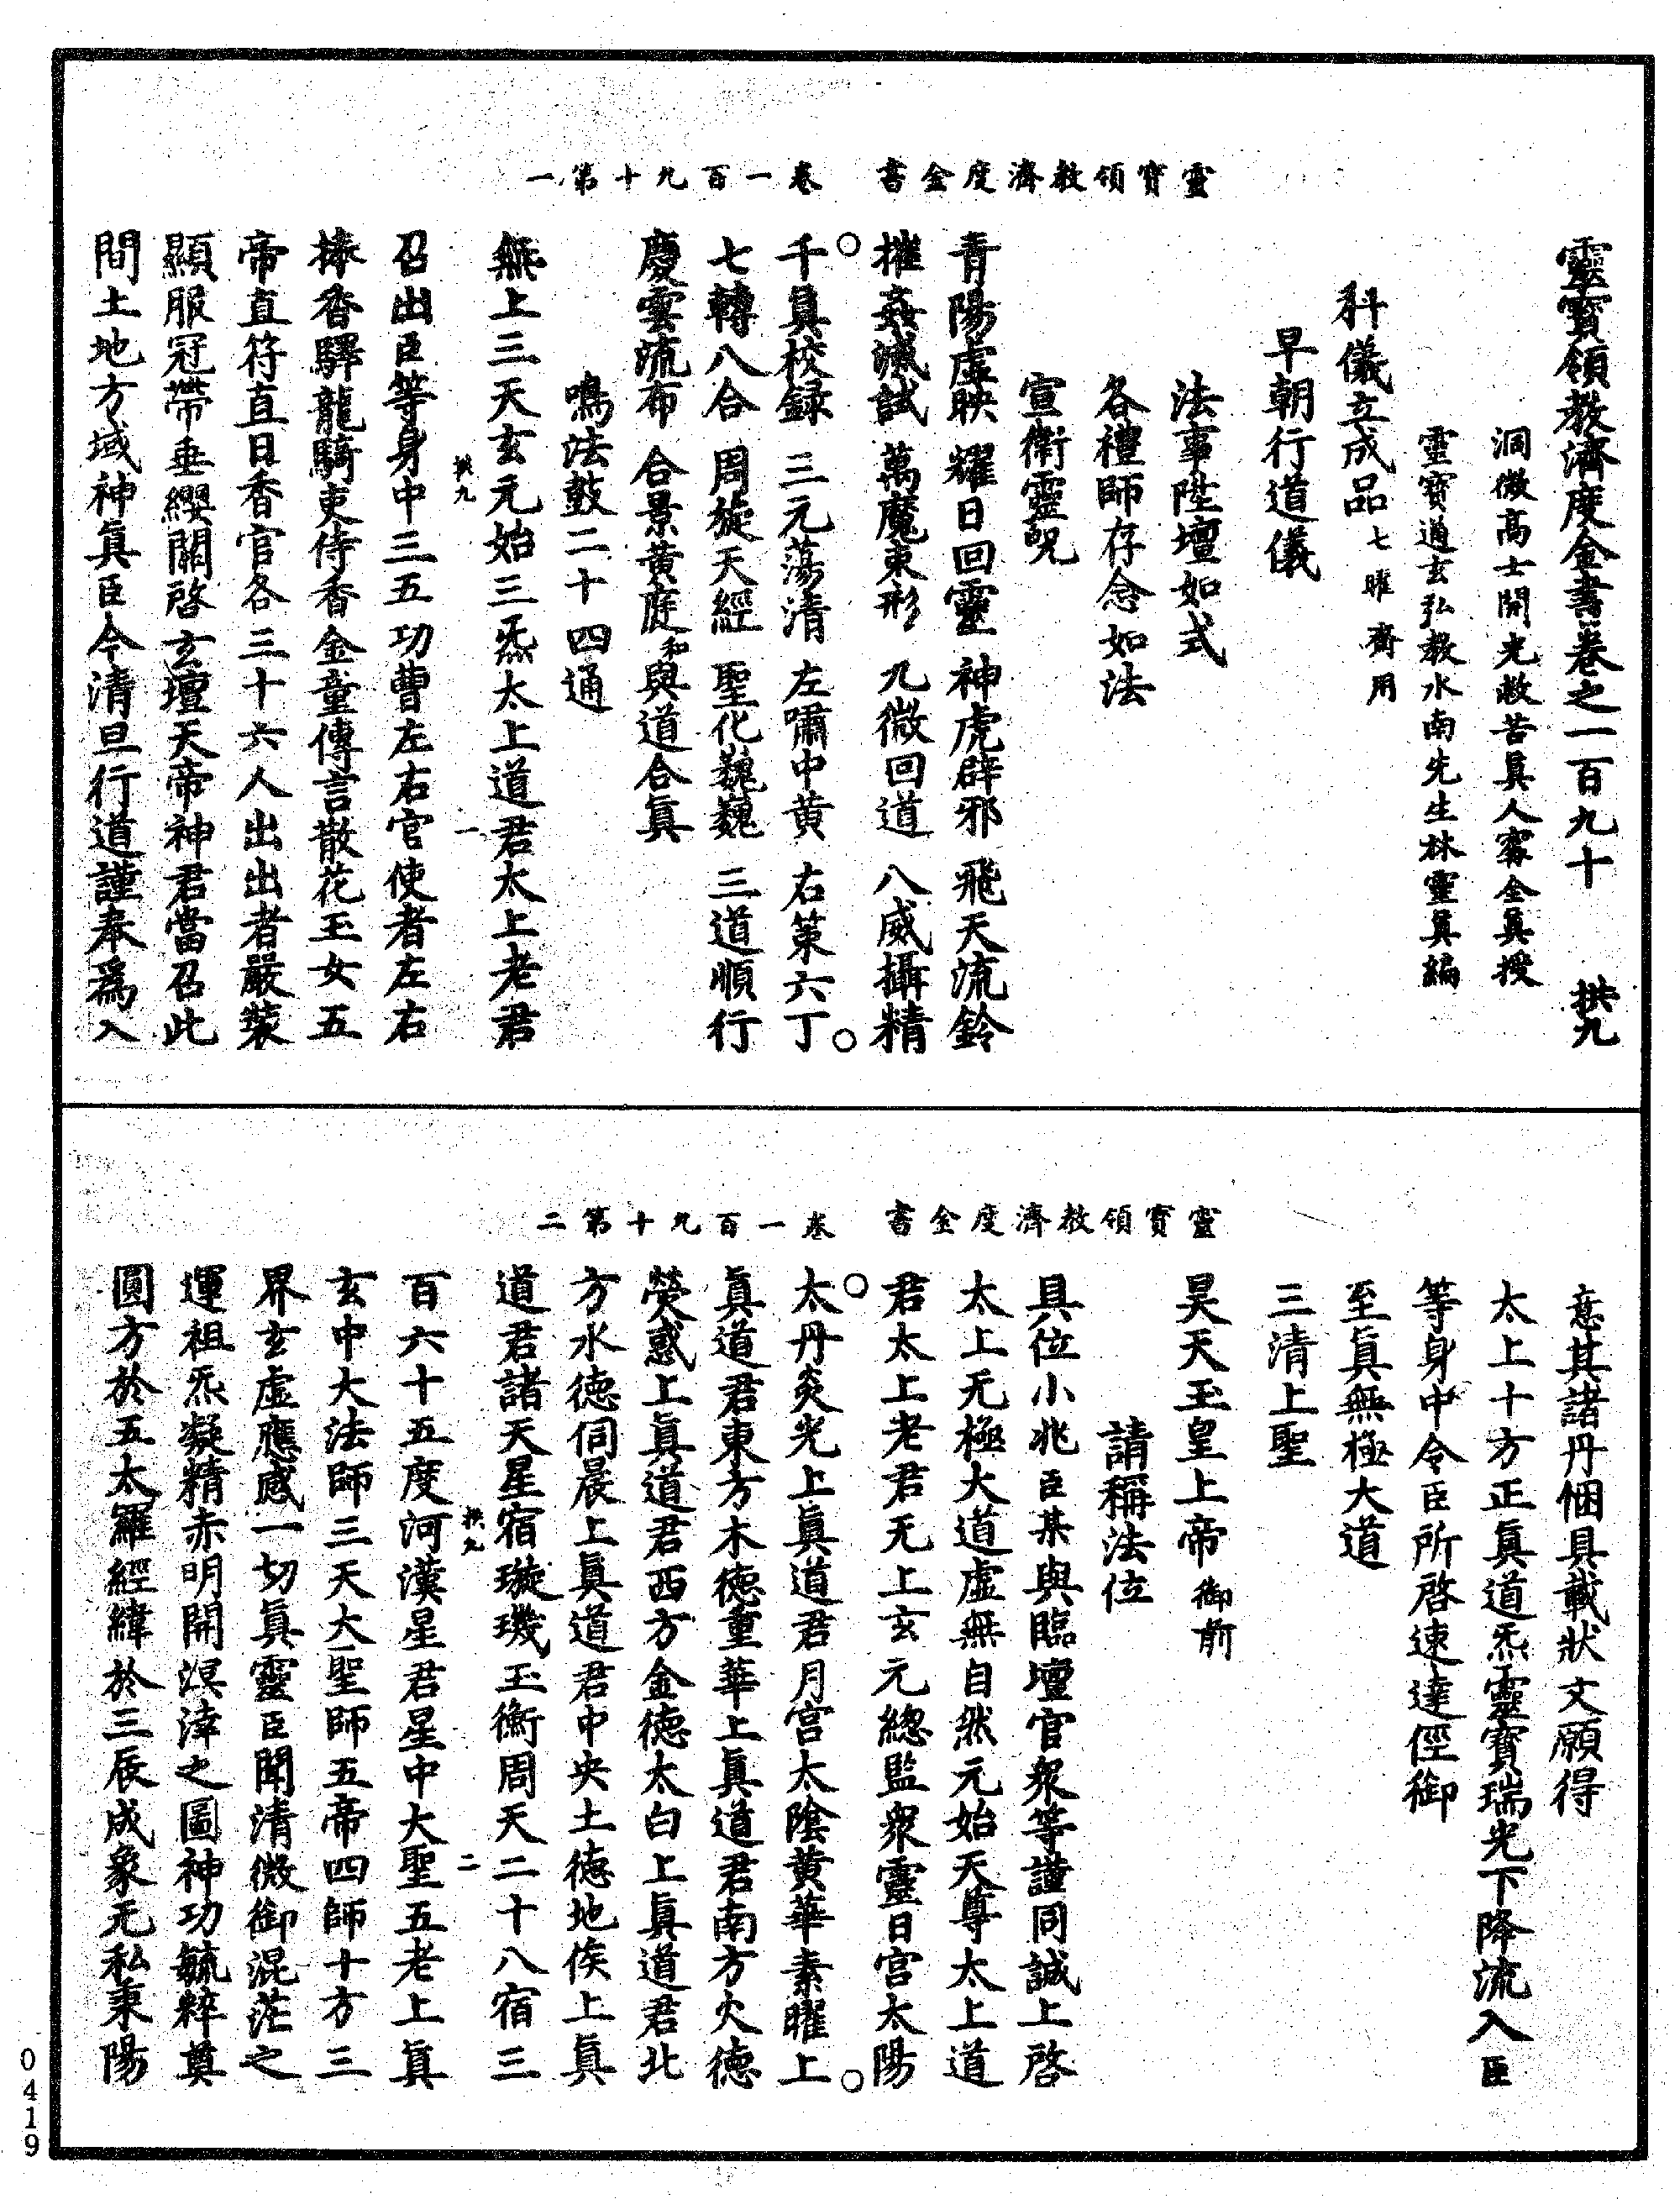 靈寶領教濟度金書　卷一百九十第一
靈寶領教濟度金書卷之一百九十　拱九
洞微高士開光救苦眞人甯全眞授
靈寶通玄弘教水南先生林靈眞編
科儀立成品七曜齋用
早朝行道儀
法事陞壇如式
各禮師存念如法
宣衛靈呪
青陽虛映　耀日回靈　神虎辟邪　飛天流鈴
摧姦滅試　萬魔束形　九微回道　八威攝精
千眞校錄　三元蕩清　左嘯中黃　右策六丁
七轉八合　周旋天經　聖化巍巍　三道順行
慶雲流布　合景黃庭和與道合眞
鳴法鼓二十四通
無上三天玄元始三炁太上道君太上老君
拱九　一
召出臣等身中三五功曹左右官使者左右
捧香驛龍騎吏侍香金童傳言散花玉女五
帝直符直日香官各三十六人出出者嚴裝
顯服冠帶垂纓關啓玄壇天帝神君當召此
間土地方域神眞臣今清旦行道謹奉爲入
靈寶領教濟度金書　卷一百九十第二
意其諸丹悃具載狀文願得
太上十方正眞道炁靈寶瑞光下降流入臣
等身中令臣所啓速達徑御
至眞無極大道
三清上聖
昊天玉皇上帝御前
請稱法位
具位小兆臣某與臨壇官衆等謹同誠上啓
太上无極大道虛無自然元始天尊太上道
君太上老君无上玄元總監衆靈日宮太陽
太丹炎光上眞道君月宮太陰黃華素曜上
眞道君東方木德重華上眞道君南方火德
熒惑上眞道君西方金德太白上眞道君北
方水德伺晨上眞道君中央土德地侯上眞
道君諸天星宿璇璣玉衡周天二十八宿三
拱九　二
百六十五度河漢星君星中大聖五老上眞
玄中大法師三天大聖師五帝四師十方三
界玄虛應感一切眞靈臣聞清微御混茫之
運祖炁凝精赤明開溟涬之圖神功毓粹奠
圓方於五太羅經緯於三辰成象无私秉陽
0419